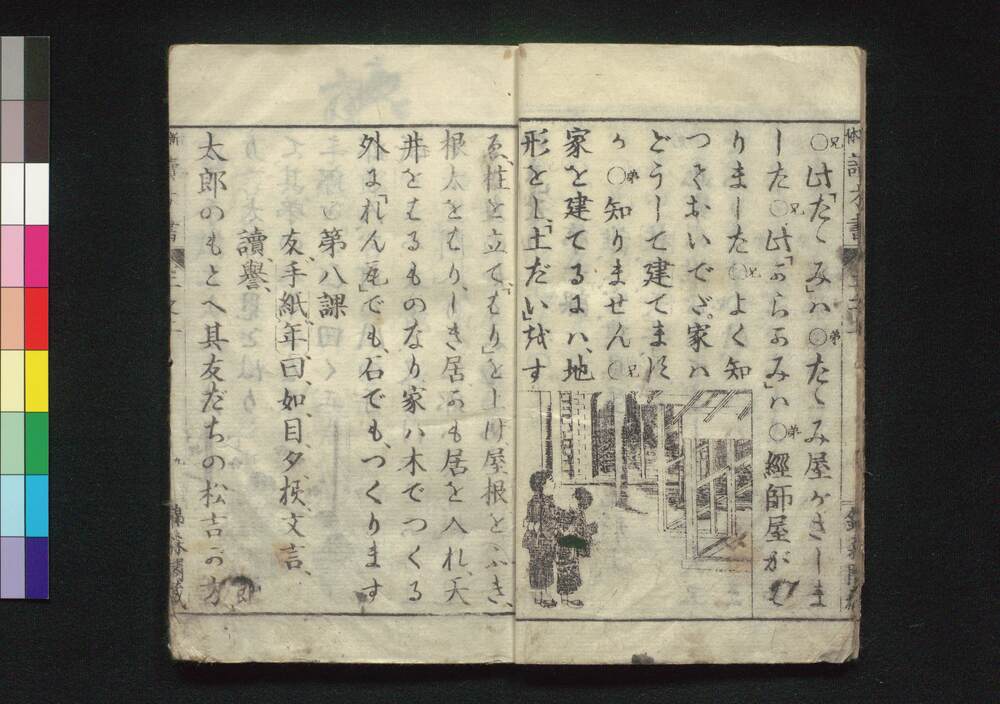 ○兄此「たゝみ」ハ○弟たゝみ屋がさしま
した○兄此「からかみ」ハ○弟經師屋がは
りました○兄よく知
つておいでだ。家ハ
どうして建てます
か○弟知りません○兄
家を建てるにハ、地
形をし、「土だい」をす
ゑ、柱を立て、「はり」を上げ、屋根をふき、
根太をはり、しき居かも居を入れ、天
井をはるものなり、家ハ木でつくる
外に「れん瓦」でも、石でも、つくります
第八課
友、手紙、年、曰、如、目、夕、校、文、言、
讀、譽、
太郎のもとへ其友だちの松吉の方